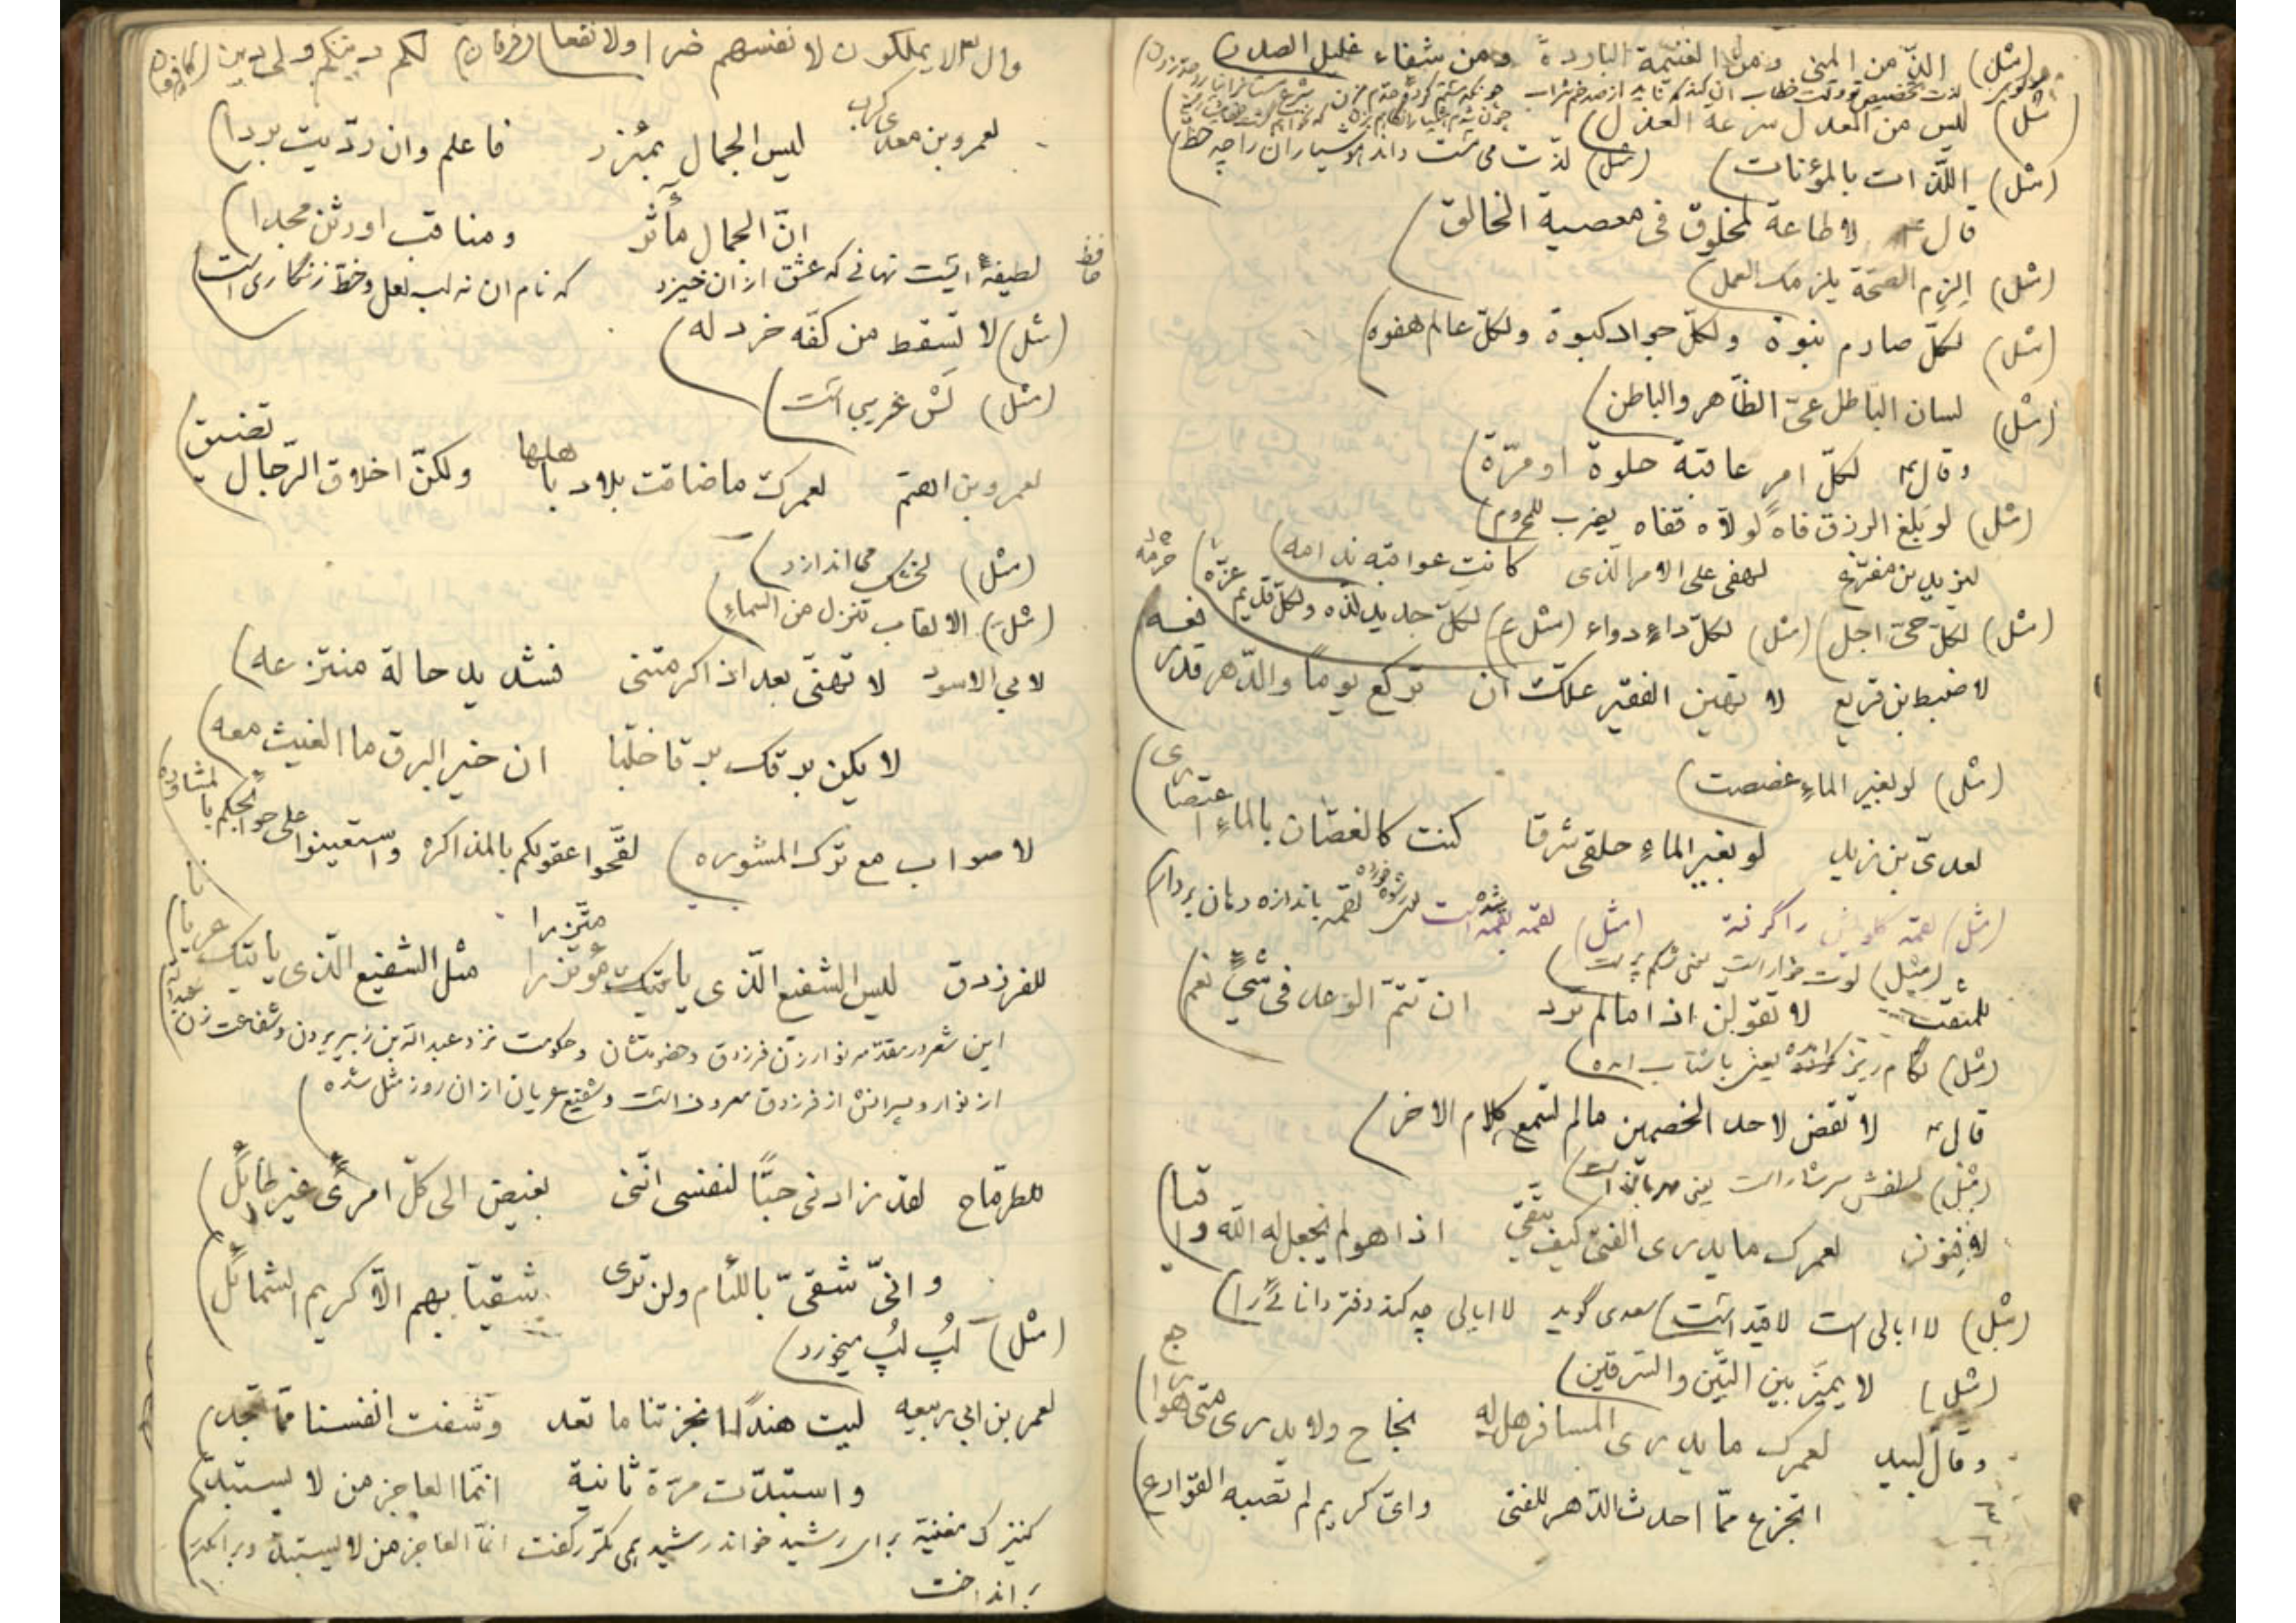 (مثل) الذّ من المنی ومن الغنیمة الباردة ومن شفاء غلیل الصدر)
(مثل) لیس من العدل سرعة العذل)
(مثل) اللّذات بالمؤنات) (مثل) لذّت می مست داند هوشیاران را چه حظّ)
قال لا طاعة لمخلوق فی معصیة الخالق)
(مثل) الزم الصحّة یلزمک العمل)
(مثل) لکلّ صارم نبوة ولکلّ جواد کبوة ولکلّ عالم هفوه)
(مثل) لسان الباطل عیّ الظّاهر والباطن)
وقال لکلّ امر عاقبة حلوة او مرّة)
(مثل) لو بلغ الرزق فاه لولّاه قفاه یضرب للمحروم)
لیزید بن مفرّغ لهفی علی الامر الّذی کانت عواقبه ندامه)
(مثل) لکلّ حیّ اجل) (مثل) لکلّ داء دواء (مثل) لکلّ جدید لذّه ولکلّ قدیم عزّه)
لاضبط بن قریع لا تهین الفقیر علّک ان ترکع یوماً والدّهر قد رفعه)
(مثل) لو بغیر الماء غصصت)
لعدیّ بن زید لو بغیر الماء حلقی شرقا کنت کالغصّان بالماء اعتصاری)
(مثل) لقمه گلویش را گرفته (مثل) لقمه بقمه است لقمه باندازه دهان بردار)
(مثل) لوت خوار است یعنی شکم پرست)
للمثقب لا تقولنّ اذا ما لم ترد ان تتمّ الوعد فی شیءٍ نعم)
(مثل) لگام ریز آمده یعنی باشتاب آمده)
قال لا تقض لاحد الخصمین مالم تسمع کلام الاخر)
(مثل) لطفش سرشار است یعنی مهربان است)
لافنون لعمرک ما یدری الفتی کیف یتّقی اذا هو لم یجعل له اللّه واقیا)
(مثل) لا ابالی است لاقید است) سعدی گوید لا ابالی چه کند دفتر دانائی را)
(مثل) لا یمیّز بین التّین والسّرقین)
وقال لبید لعمرک ما یدری المسافر هل له نجاح ولا یدری متی هو راجع)
اتجزع ممّا احدث الدّهر للفتی وایّ کریم لم تصبه القوارع)
لا یملکون لانفسهم ضرا ولا نفعا (فرقان) لکم دینکم ولی دین (کافرون)
لعمرو بن معدی کرب لیس الجمال بمئزر فاعلم وان ردّیت بردا)
انّ الجمال مآثر ومناقب اورثن مجدا)
حافظ لطیفهٔ ایست نهانی که عشق از آن خیزد که نام آن نه لب لعل وخطّ زنگاری است
(مثل) لا تسقط من کفّه خردله)
(مثل) لَش غریبی است)
لعمرو بن اهتم لعمرک ما ضاقت بلاد باهلها ولکنّ اخلاق الرّجال تضیق)
(مثل) لخشک می اندازد)
(مثل) الالقاب تنزل من السماء)
لابی الاسود لا تهنّی بعد اذ اکرمتنی فشدید حالة منتزعه)
لا یکن برقک برقا خلّبا ان خیر البرق ما الغیث معه)
لا صواب مع ترک المشوره) لقّحوا عقولکم بالمذاکره واستعینوا علی حوائجکم بالمشاوره
للفرزدق لیس الشفیع الّذی یاتیک مؤتزرا مثل الشفیع الّذی یاتیک عریانا)
متّزرا
این شعر در مقدّمه نوار زن فرزدق وخصومتشان وحکومت نزد عبد اللّه بن زبیر بردن وشفاعت زن عبد اللّه
از نوار وپسرانش از فرزدق معروف است وشفیع عریان از آن روز مثل شده)
للطرمّاح لقد زادنی حبّاً لنفسی انّنی بغیض الی کلّ امرئٍ غیر طائل)
وانّی شقیّ باللئام ولن تری شقیّا بهم الّا کریم الشمائل)
(مثل) لُپ لُپ میخورد)
لعمر بن ابی ربیعه لیت هنداً انجزتنا ما تعد وشفت انفسنا ممّا تجد)
واستبدّت مرّة ثانیة انّما العاجز من لا یستبدّ)
کنیزک مغنیة برای رشید خواند رشید بمی مکرّر گفت انّما العاجز من لا یستبدّ وبرامکه
بر انداخت